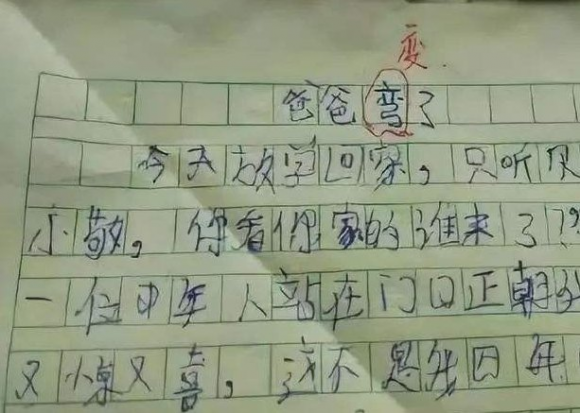 变
爸爸弯了
今天放学回家，只听见
小敬，你看你家的谁来了？
一位中年人站在门口正朝
又惊又喜，这不是 四年